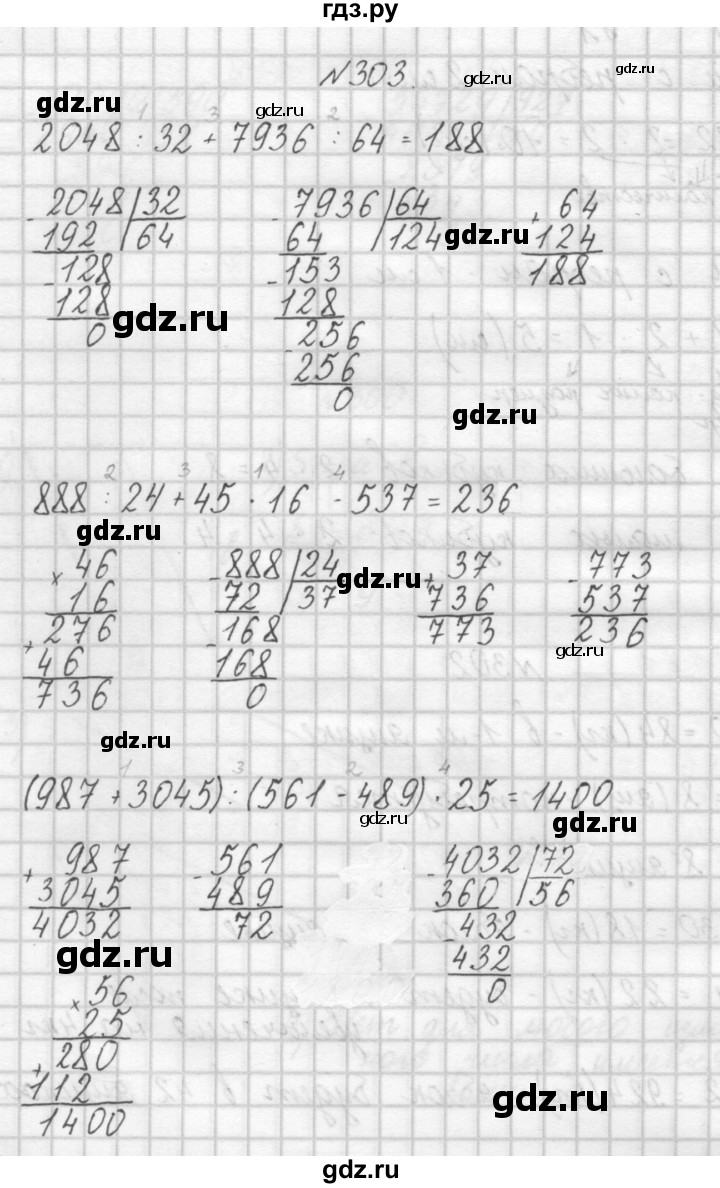 гдз.ру
№303.
gdz.ru
gdz.ru
gdz.ru
1 3 2
2048 : 32 + 7936 : 64 = 188
- 2048 | 32
192 | 64
- 128
128
0
gdz.ru
- 7936 | 64
64 | 124
- 153
128
- 256
256
0
+ 64
124
188
gdz.ru
gdz.ru
2 3 1 4
888 : 24 + 45 · 16 - 537 = 236
gdz.ru
× 46
16
276
+ 46
736
- 888 | 24
72 | 37
- 168
168
0
gdz.ru
+ 37
736
773
- 773
537
236
gdz.ru
gdz.ru
1 3 2 4
(987 + 3045) : (561 - 489) · 25 = 1400
gdz.ru
gdz.ru
+ 987
3045
4032
- 561
489
72
- 4032 | 72
360 | 56
- 432
432
0
gdz.ru
× 56
25
280
+ 112
1400
gdz.ru
gdz.ru